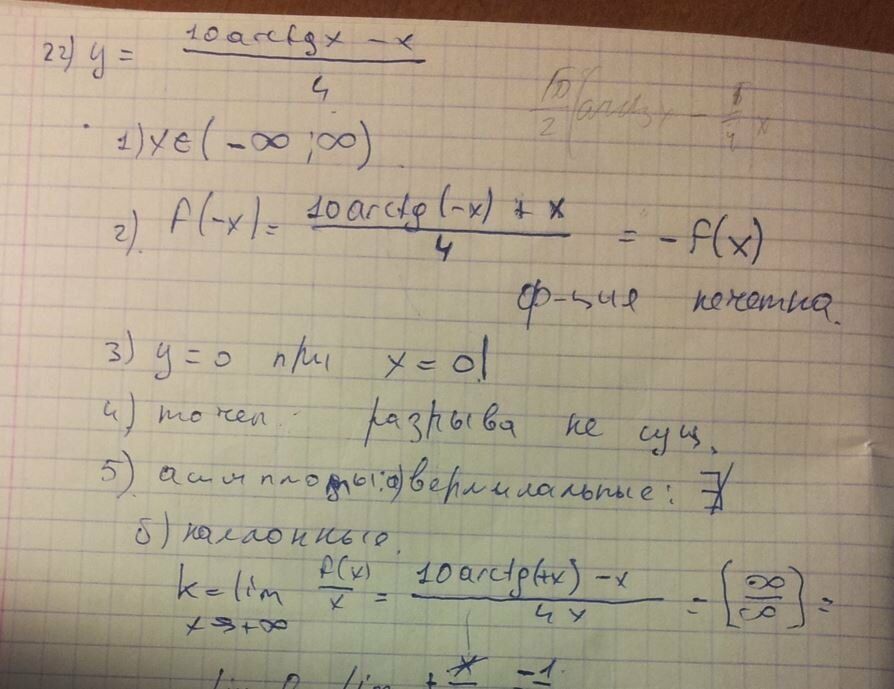 22) y = (10 arctg x - x) / 4
1) x ∈ (-∞ ; ∞)
2) f(-x) = (10 arctg(-x) + x) / 4 = -f(x)
ф-ция нечетна.
3) y = 0 при x = 0!
4) точек разрыва не сущ.
5) асимптоты: а) вертикальные: ∄
б) наклонные.
k = lim x→+∞ f(x)/x = (10 arctg(+x) - x) / 4x = [∞/∞] =